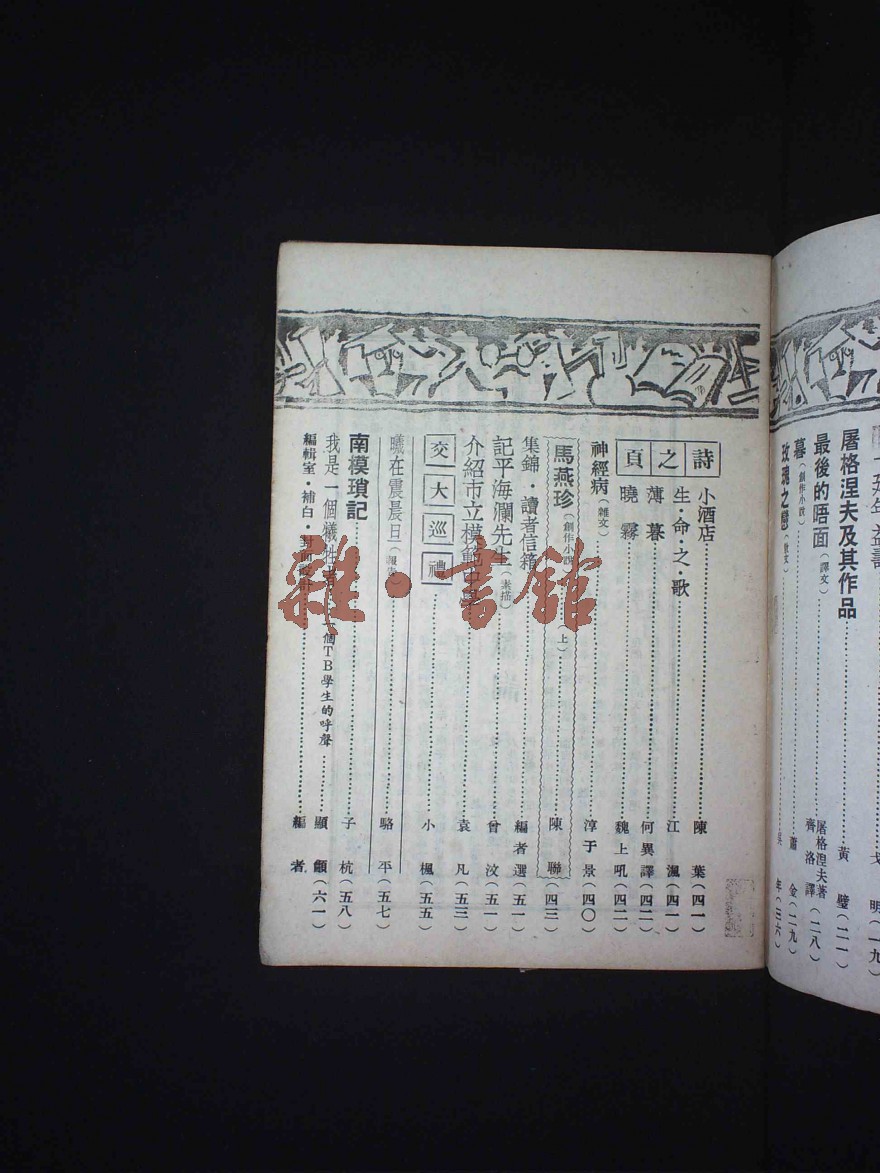 屠格涅夫及其作品……黃璧(二一)
最後的晤面(譯文)……屠格涅夫著 齊洛譯(二八)
暮(創作小說)……蕭金(二九)
玫瑰之戀(散文)……年(三六)
詩之頁
小酒店……陳葉(四一)
生·命·之·歌……江濕(四一)
薄暮……何異譯(四二)
曉霧……魏上吼(四二)
神經病(雜文)……淳于景(四〇)
馬燕珍(創作小說)上……陳聯(四三)
集錦·讀者信箱……編者選(五一)
記平海瀾先生(素描)……曾汶(五一)
介紹市立模範中學……袁凡(五三)
交大巡禮……小楓(五五)
曦在震晨旦(報告)……駱平(五七)
南模瑣記……子杭(五八)
我是一個犧牲者 一個TB學生的呼聲……顯顱(六一)
編輯室·補白·封面設計……編者
雜·書館